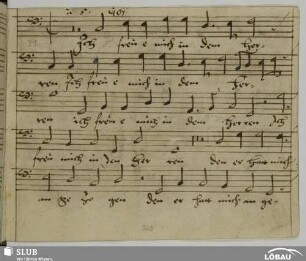 Ich freu e mich in dem her-
ren Ich freu e mich in dem her-
ren ich freu e mich in dem herren Ich
freu mich in dem her ren den er hat mich
an ge zo gen den er hat mich an ge-
SLUB
Wir führen Wissen.
LÖBAU